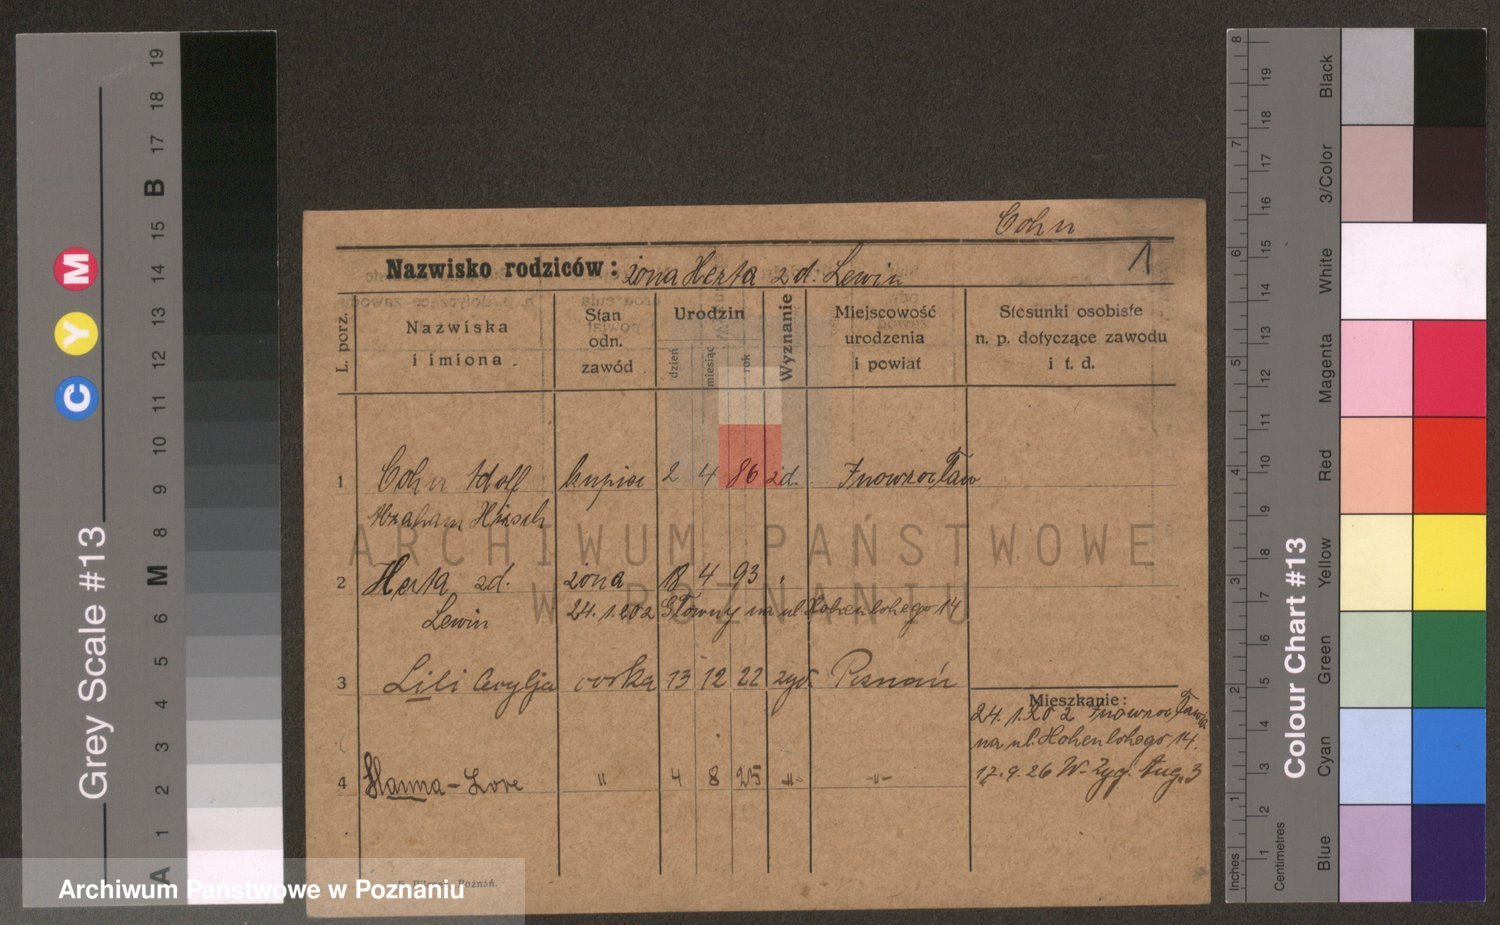 Cohn
1
Nazwisko rodziców: żona Herta żd. Lewin
L. porz.
Nazwiska i imiona
Stan odn. zawód
Urodzin
dzień
miesiąc
rok
Wyznanie
Miejscowość urodzenia i powiat
Stosunki osobiste n. p. dotyczące zawodu i t. d.
1 Cohn Adolf kupiec 2 4 86 żd. Inowrocław
Abraham Hirsch
2 Herta zd. żona 4 93
Lewin 24.1.202 Główny na ul Hohenlohego 14
3 Lili córka 13 12 22 żyd. Poznań
Mieszkanie:
24. 1. 20 2
na ul. Hohenlohego 14.
17.9.26 W- Zyg. Aug. 3
4 Hanna - Lore " 4 8 25 -"- -"-
Poznań.
ARCHIWUM PAŃSTWOWE
W POZNANIU
Archiwum Państwowe w Poznaniu
Grey Scale #13
C Y M
A 1 2 3 4 5 6 M 8 9 10 11 12 13 14 15 B 17 18 19
Colour Chart #13
Inches 1 2 3 4 5 6 7 8
Centimetres 1 2 3 4 5 6 7 8 9 10 11 12 13 14 15 16 17 18 19
Blue
Cyan
Green
Yellow
Red
Magenta
White
3/Color
Black